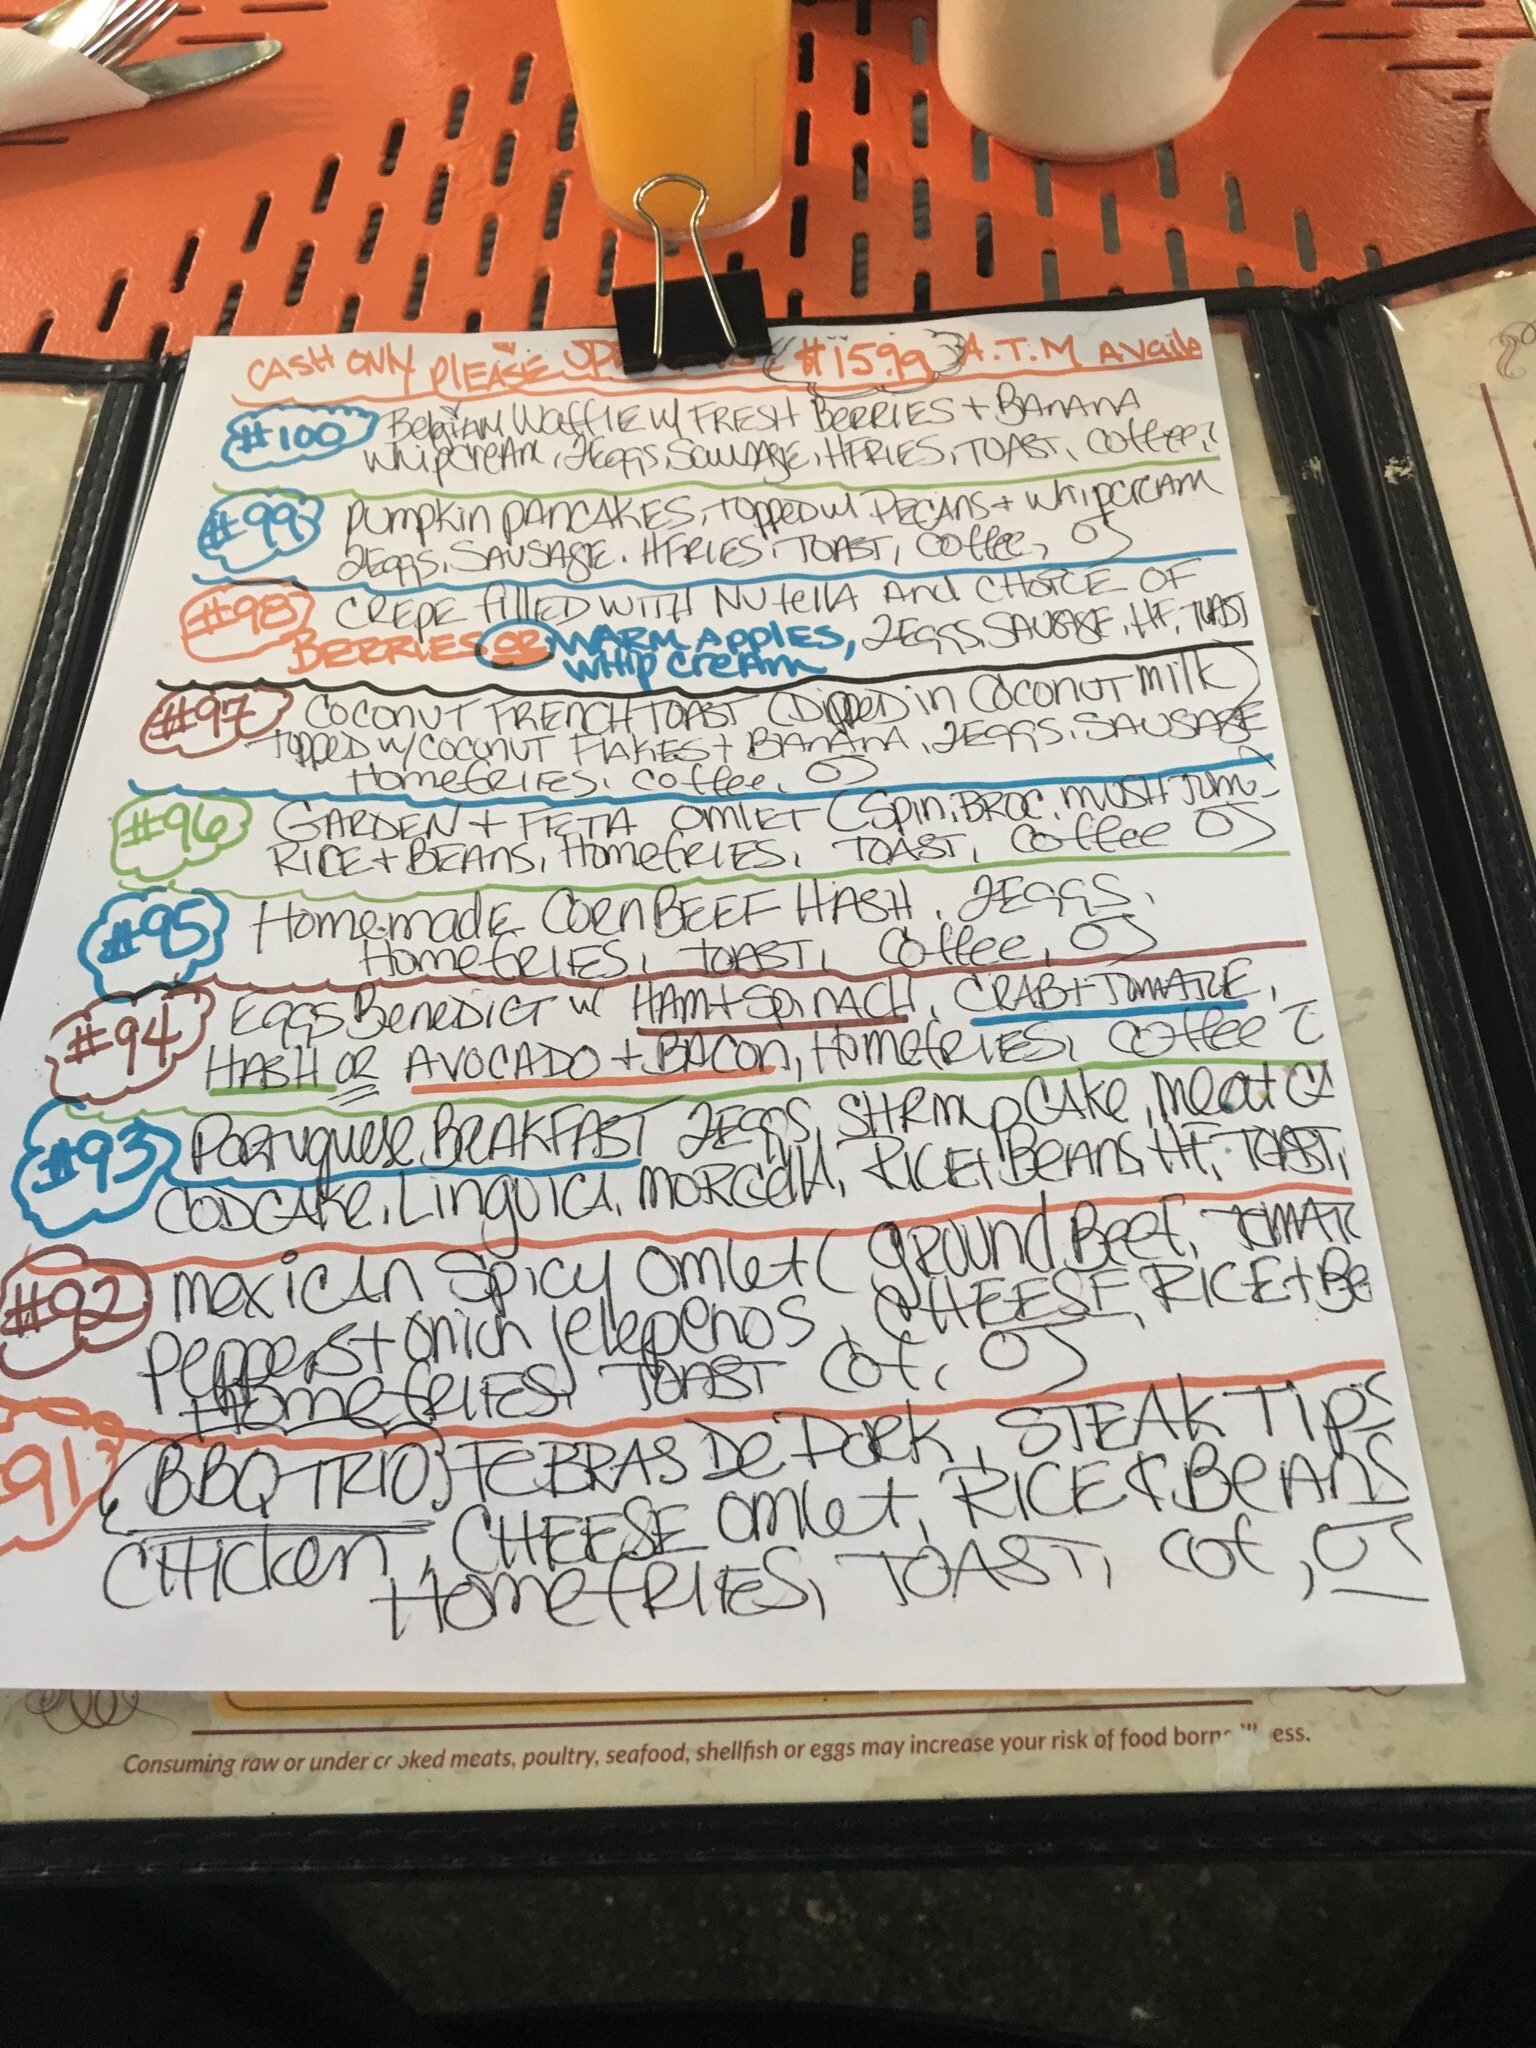 CASH ONLY PLEASE $15.99 A.T.M AVAilE
#100 BelgiAM WAffle w/ FRESH BERRIES + BANANA
WhipCREAM, 2EGGS, SAUSAGE, HFRIES, TOAST, COffEE,
#99 PUMPKIN PANCAKES, TOPPED w/ PECANS + WHIPCREAM
2EGGS, SAUSAGE, HFRIES, TOAST, COffEE, OJ
#98 CREPE fillED WITH NUtellA AND CHOICE OF
BERRIES OR WARM APPlES, 2EGGS, SAUSAGE, HF, TOAST
WHIP CREAM
#97 COCONUT FRENCH TOAST (DippED in COCONUT milk)
TOPPED w/ COCONUT FLAKES + BANANA, 2EGGS, SAUSAGE
HomefRIES, COffEE, OJ
#96 GARDEN + FETA OMLET (SPIN, BROC, MUSH, TOM-
RICE + BEANS, HomefRIES, TOAST, COffEE OJ
#95 Homemade CORN BEEF HASH, 2EGGS,
HomefRIES, TOAST, COffEE, OJ
#94 EGGS BENEDICT w/ HAM + SPINACH, CRAB + TOMATOE,
HASH OR AVOCADO + BACON, HomefRIES, COffEE
#93 PORTUguese BREAKFAST 2EGGS, SHRIMP CAKE, MEAT CA
CODCAKE, LINGUICA, MORCELLA, RICE + BEANS, HF, TOAST,
#92 MEXICAN SPICY OMLET ( GROUND BEEF, TOMATO
PEPPERS + ONION jelepENOS, CHEESE, RICE + BE
HomefRIES, TOAST COf, OJ
#91 (BBQ TRIO) FEBRAS DE PORK, STEAK TIPS
CHICKEN, CHEESE OMLET, RICE & BEANS
HomefRIES, TOAST, COf, OJ
Consuming raw or under cooked meats, poultry, seafood, shellfish or eggs may increase your risk of food borne illness.